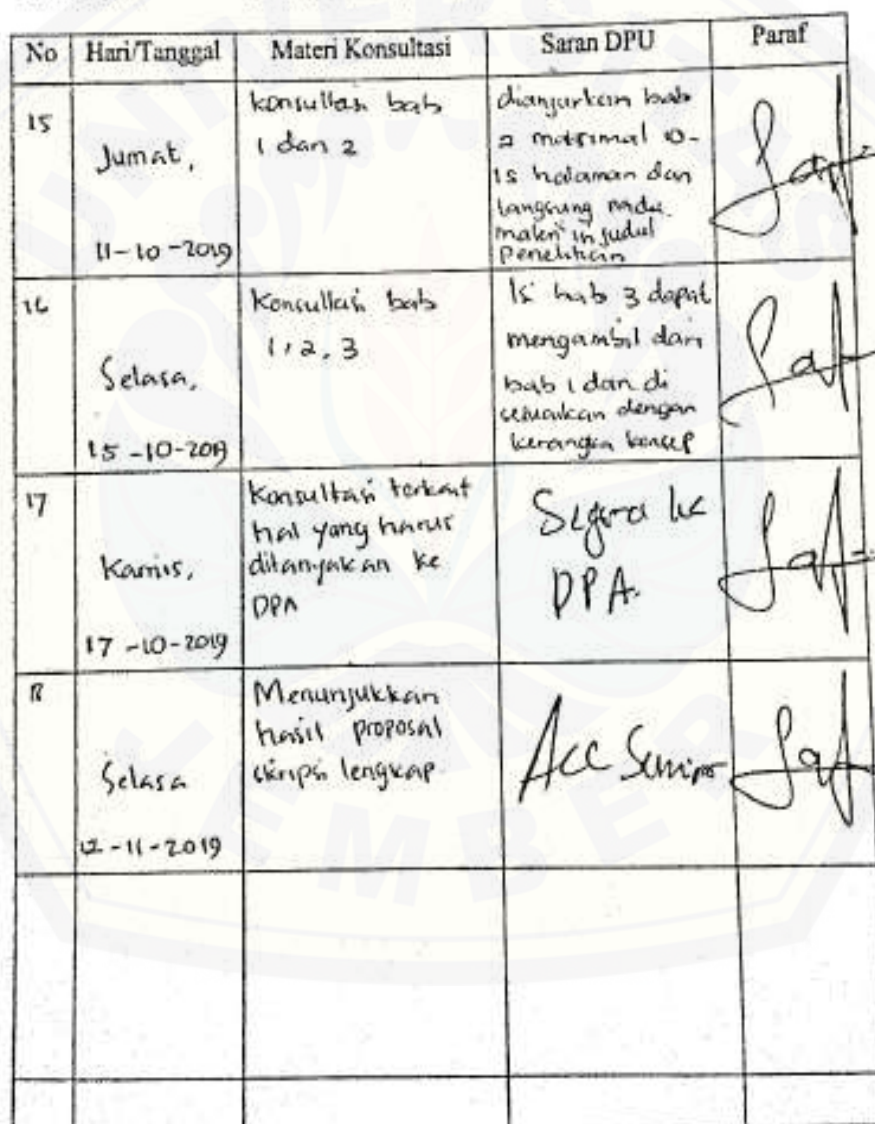 No Hari/Tanggal Materi Konsultasi Saran DPU Paraf
15
Jumat,
11-10-2019
konsultasi bab
1 dan 2
dianjurkan bab
2 maksimal 10-
15 halaman dan
langsung pada
materi judul
Penelitian
16
Selasa,
15-10-2019
Konsultasi bab
1, 2, 3
Isi bab 3 dapat
mengambil dari
bab 1 dan di
sesuaikan dengan
kerangka konsep
17
Kamis,
17-10-2019
Konsultasi terkait
hal yang harus
ditanyakan ke
DPA
Segera ke
DPA.
18
Selasa
12-11-2019
Menunjukkan
hasil proposal
skripsi lengkap
Acc Sempro
JEMBER